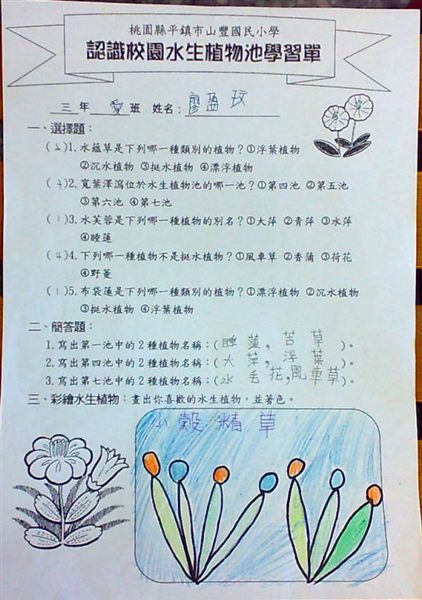 桃園縣平鎮市山豐國民小學
認識校園水生植物池學習單
三年 愛 班 姓名: 廖盈玟
一、選擇題:
(2)1.水蘊草是下列哪一種類別的植物?①浮葉植物
②沉水植物 ③挺水植物 ④漂浮植物
( )2.寬葉澤瀉位於水生植物池的哪一池?①第四池 ②第五池
③第六池 ④第七池
( )3.水芙蓉是下列哪一種植物的別名?①大萍 ②青萍 ③水萍
④睡蓮
( )4.下列哪一種植物不是挺水植物?①風車草 ②香蒲 ③荷花
④野菱
( )5.布袋蓮是下列哪一種類別的植物?①漂浮植物 ②沉水植物
③挺水植物 ④浮葉植物
二、簡答題:
1.寫出第一池中的2種植物名稱:(睡蓮,苦草)。
2.寫出第四池中的2種植物名稱:(大萍,浮葉)。
3.寫出第七池中的2種植物名稱:(水毛花,風車草)。
三、彩繪水生植物:畫出你喜歡的水生植物,並著色。
小穀精草